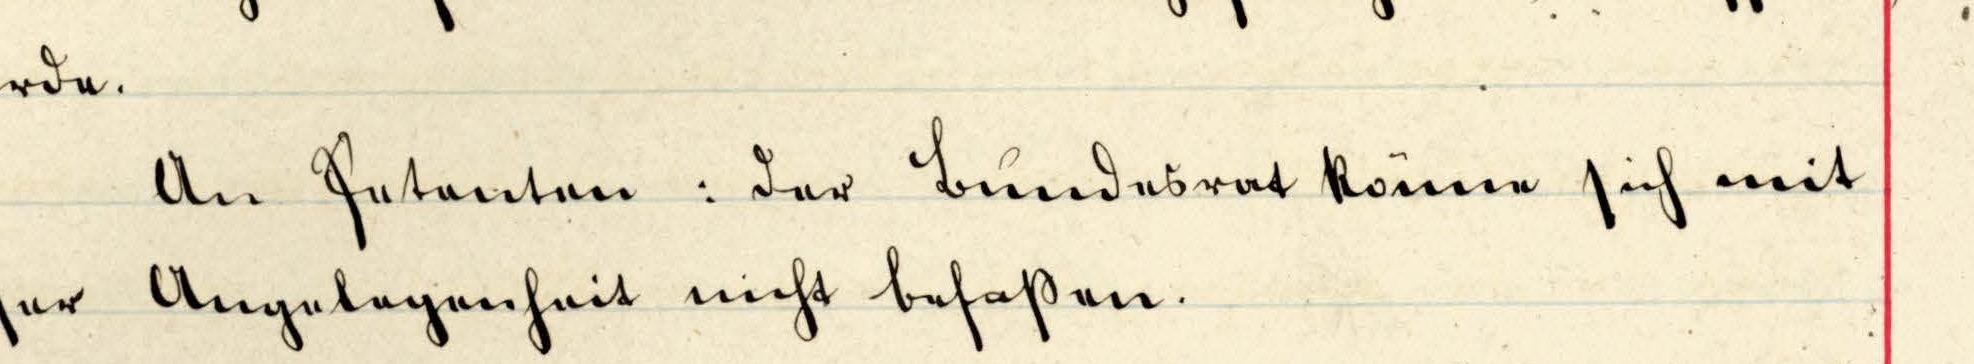 rde.
An Petenten: der Bundesrat könne sich mit
ser Angelegenheit nicht befaßen.